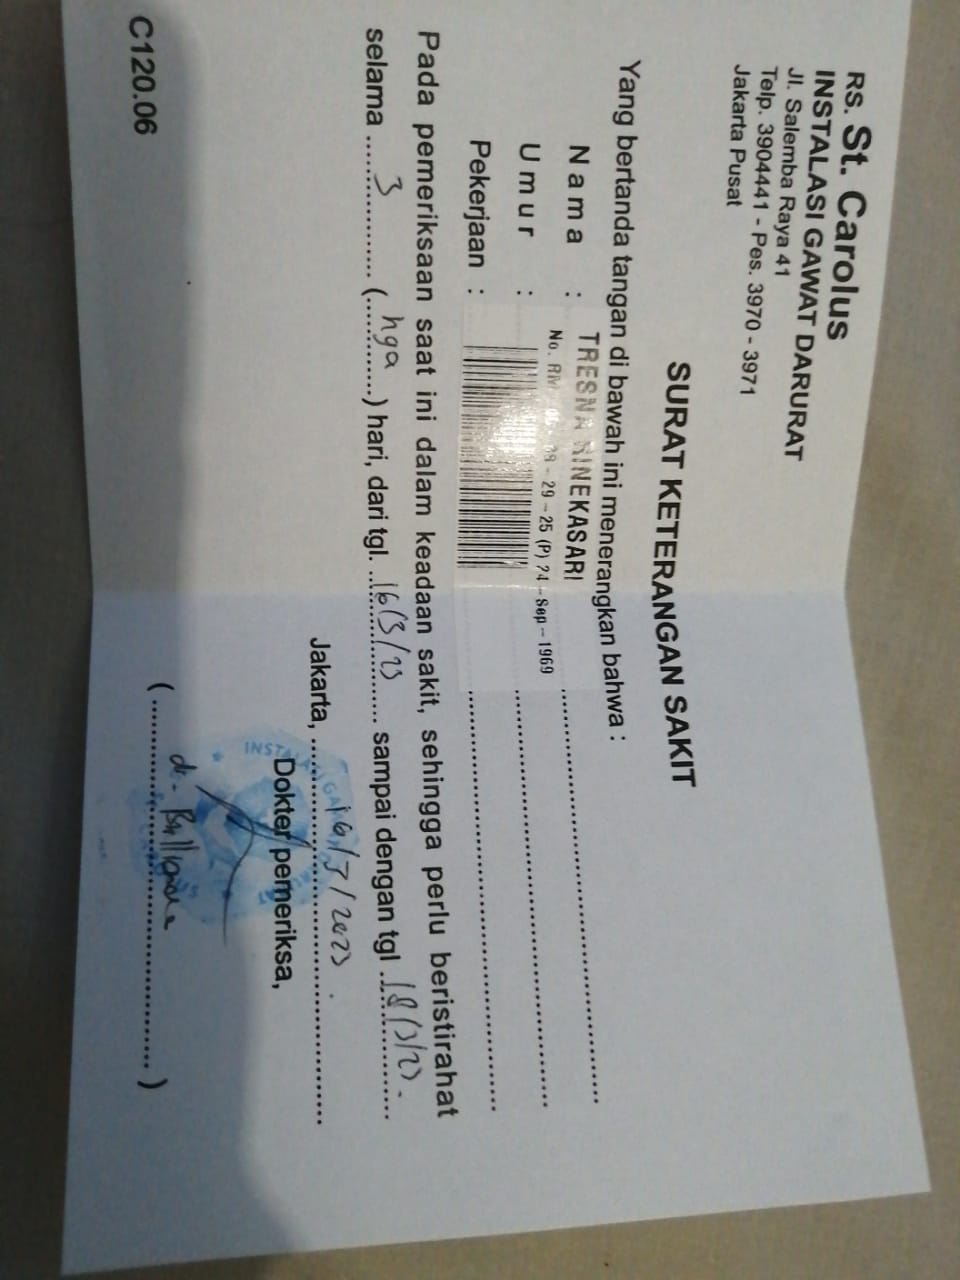 RS. St. Carolus
INSTALASI GAWAT DARURAT
Jl. Salemba Raya 41
Telp. 3904441 - Pes. 3970 - 3971
Jakarta Pusat
SURAT KETERANGAN SAKIT
Yang bertanda tangan di bawah ini menerangkan bahwa :
Nama : TRESNA RINEKASARI
No. RM - 29 - 25 (P) 24 - Sep - 1969
Umur :
Pekerjaan :
Pada pemeriksaan saat ini dalam keadaan sakit, sehingga perlu beristirahat
selama 3 (tiga) hari, dari tgl. 16/3/23 sampai dengan tgl 18/3/23.
Jakarta, 16/3/2023.
Dokter pemeriksa,
INSTALASI GAWAT
(dr.)
C120.06